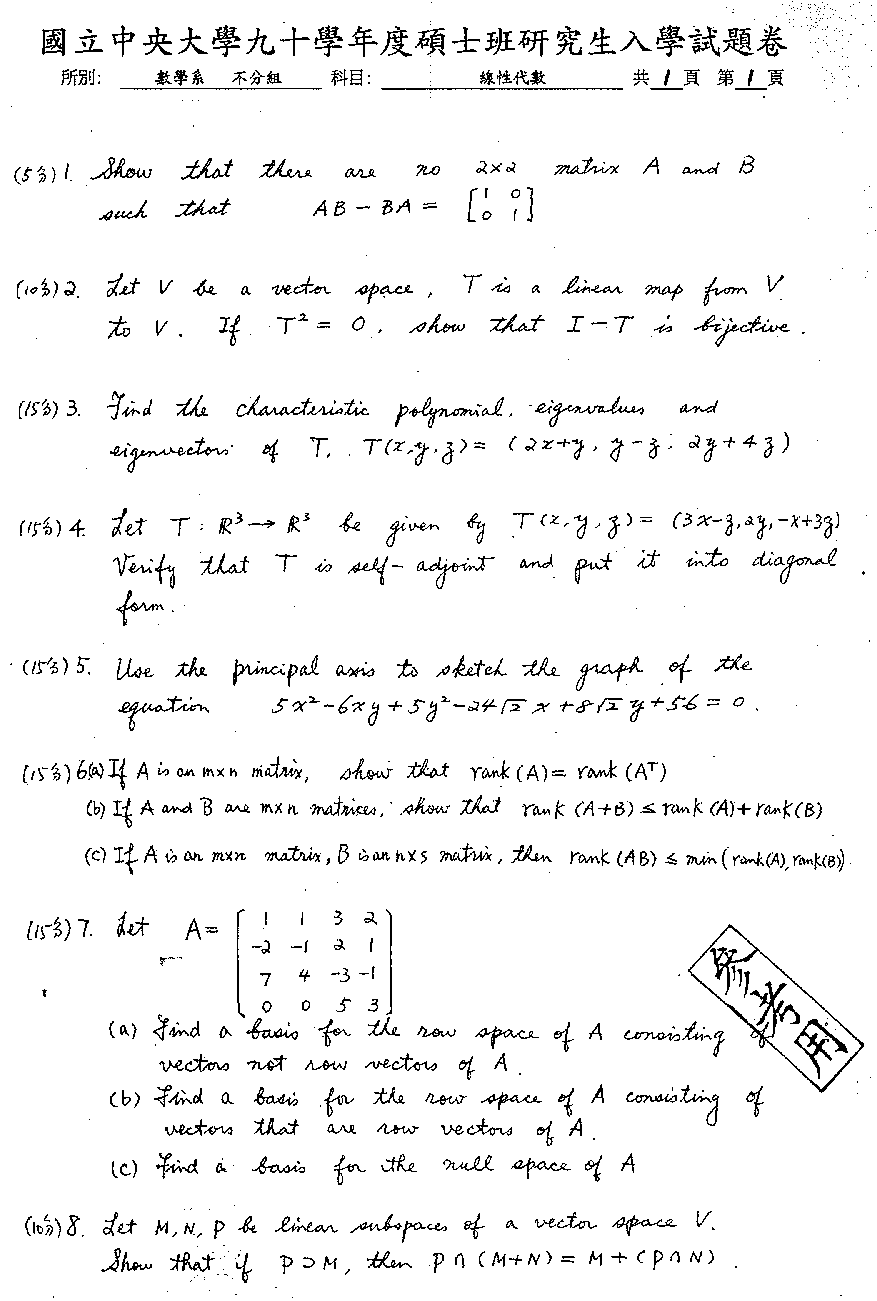 國立中央大學九十學年度碩士班研究生入學試題卷
所別: 數學系 不分組 科目: 線性代數 共 1 頁 第 1 頁
(5分) 1. Show that there are no 2×2 matrix A and B
such that AB - BA = [1 0
0 1]
(10分) 2. Let V be a vector space, T is a linear map from V
to V. If T² = 0, show that I - T is bijective.
(15分) 3. Find the characteristic polynomial, eigenvalues and
eigenvectors of T, T(x,y,z) = (2x+y, y-z, 2y+4z)
(15分) 4. Let T : ℝ³ → ℝ³ be given by T(x,y,z) = (3x-z, 2y, -x+3z)
Verify that T is self-adjoint and put it into diagonal
form.
(15分) 5. Use the principal axis to sketch the graph of the
equation 5x² - 6xy + 5y² - 24√2 x + 8√2 y + 56 = 0.
(15分) 6(a) If A is an m×n matrix, show that rank(A) = rank(Aᵀ)
(b) If A and B are m×n matrices, show that rank(A+B) ≤ rank(A) + rank(B)
(c) If A is an m×n matrix, B is an n×s matrix, then rank(AB) ≤ min(rank(A), rank(B)).
(15分) 7. Let A = [1 1 3 2
-2 -1 2 1
7 4 -3 -1
0 0 5 3]
(a) Find a basis for the row space of A consisting of
vectors not row vectors of A.
(b) Find a basis for the row space of A consisting of
vectors that are row vectors of A.
(c) Find a basis for the null space of A
參考用
(10分) 8. Let M, N, P be linear subspaces of a vector space V.
Show that if P ⊃ M, then P ∩ (M+N) = M + (P ∩ N).